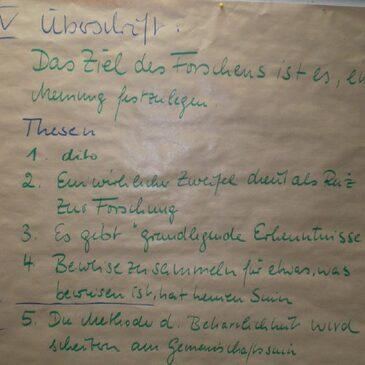 IV Überschrift:
Das Ziel des Forschens ist es, ei
Meinung festzulegen.
Thesen
1. dito
2. Ein wirklicher Zweifel dient als Reiz
zur Forschung
3. Es gibt "grundlegende Erkenntnisse
4 Beweise zu sammeln für etwas, was
bewiesen ist, hat keinen Sinn
5. Die Methode d. Beharrlichkeit wird
scheitern am Gemeinschaftssinn